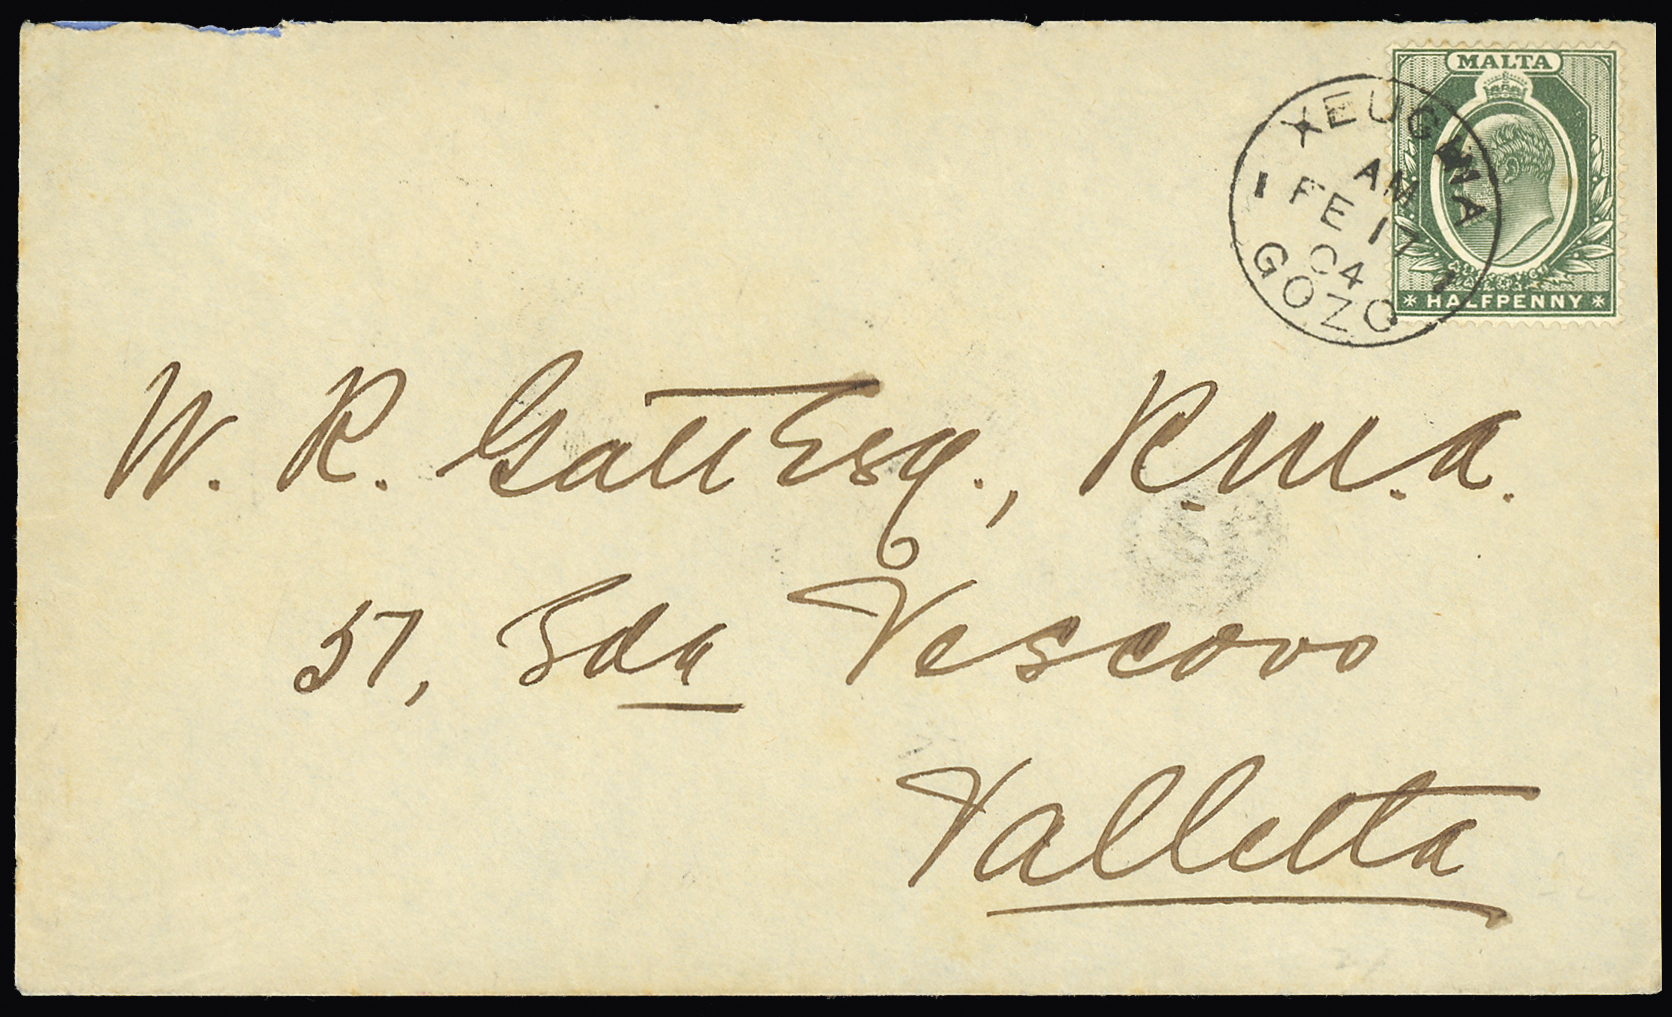 MALTA
HALFPENNY
XEUCHIA
AM
1 FE 17 1
04
GOZO
W. R. Gatt Esq., R.M.A.
57, Sda Vescovo
Valletta